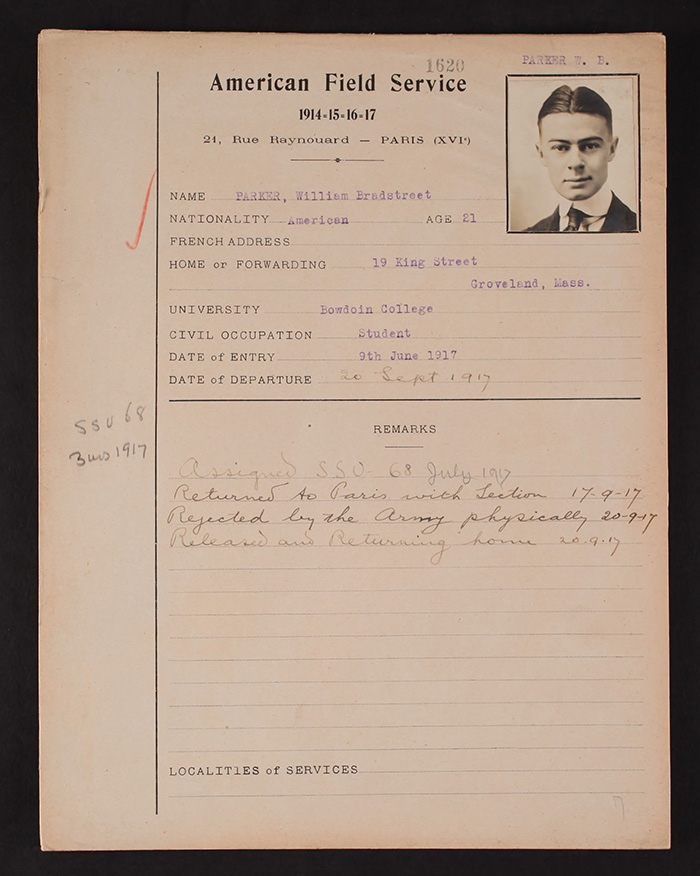 1620
PARKER W. B.
American Field Service
1914-15-16-17
21, Rue Raynouard — PARIS (XVIe)
NAME PARKER, William Bradstreet
NATIONALITY American AGE 21
FRENCH ADDRESS
HOME or FORWARDING 19 King Street
Groveland, Mass.
UNIVERSITY Bowdoin College
CIVIL OCCUPATION Student
DATE of ENTRY 9th June 1917
DATE of DEPARTURE 20 Sept 1917
SSU 68
3 1917
REMARKS
Assigned SSU - 68 July 1917
Returned to Paris with Section 17-9-17
Rejected by the Army physically 20-9-17
Released and Returning home 20-9-17
LOCALITIES of SERVICES
7